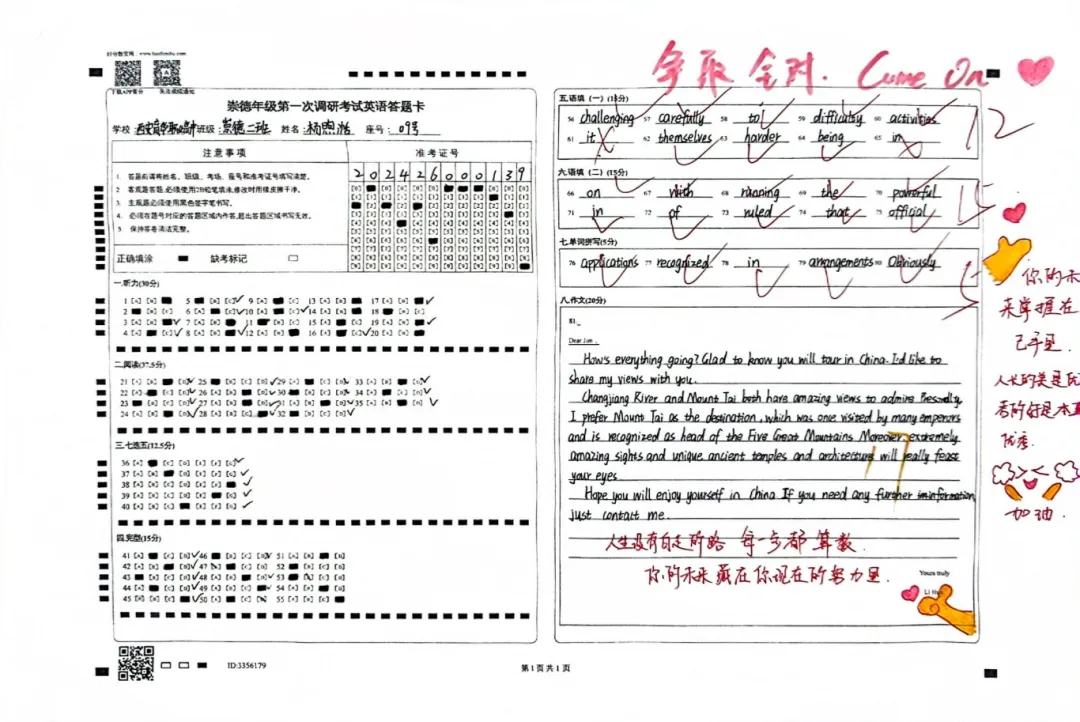 好分数官网：www.haofenshu.com
下载APP查分 关注成绩通知
争取全对. Come On
崇德年级第一次调研考试英语答题卡
学校 班级 崇德二班 姓名 座号 09号
注意事项
准考证号
1. 答题前请将姓名、班级、考场、座号和准考证号填写清楚。
2 客观题答题,必须使用2B铅笔填涂,修改时用橡皮擦干净。
3 主观题必须使用黑色签字笔书写。
4 必须在题号对应的答题区域内作答,超出答题区域书写无效。
5 保持答卷清洁完整。
正确填涂 缺考标记
202426000139
一.听力(30分)
二.阅读(37.5分)
三.七选五(12.5分)
四.完型(15分)
五.语填（一）(15分)
56 challenging 57 carefully 58 to 59 difficulty 60 activities
61 it 62 themselves 63 harder 64 being 65 in
12
六.语填（二）(15分)
66 on 67 with 68 running 69 the 70 powerful
71 in 72 of 73 ruled 74 that 75 official
15
七.单词拼写(5分)
76 applications 77 recognized 78 in 79 arrangements 80 Obviously
5
八.作文(20分)
81.
Dear Jim,
How's everything going? Glad to know you will tour in China. I'd like to
share my views with you.
Changjiang River and Mount Tai both have amazing views to admire. Personally,
I prefer Mount Tai as the destination, which was once visited by many emperors
and is recognized as head of the Five Great Mountains. Moreover, extremely
amazing sights and unique ancient temples and architecture will really feast
your eyes
Hope you will enjoy yourself in China. If you need any further information,
just contact me.
17
人生没有白走的路 每一步都算数.
你的未来藏在你现在的努力里.
Yours truly
Li Hua
你的未
来掌握在
己手里.
加油.
ID:3356179
第1页共1页